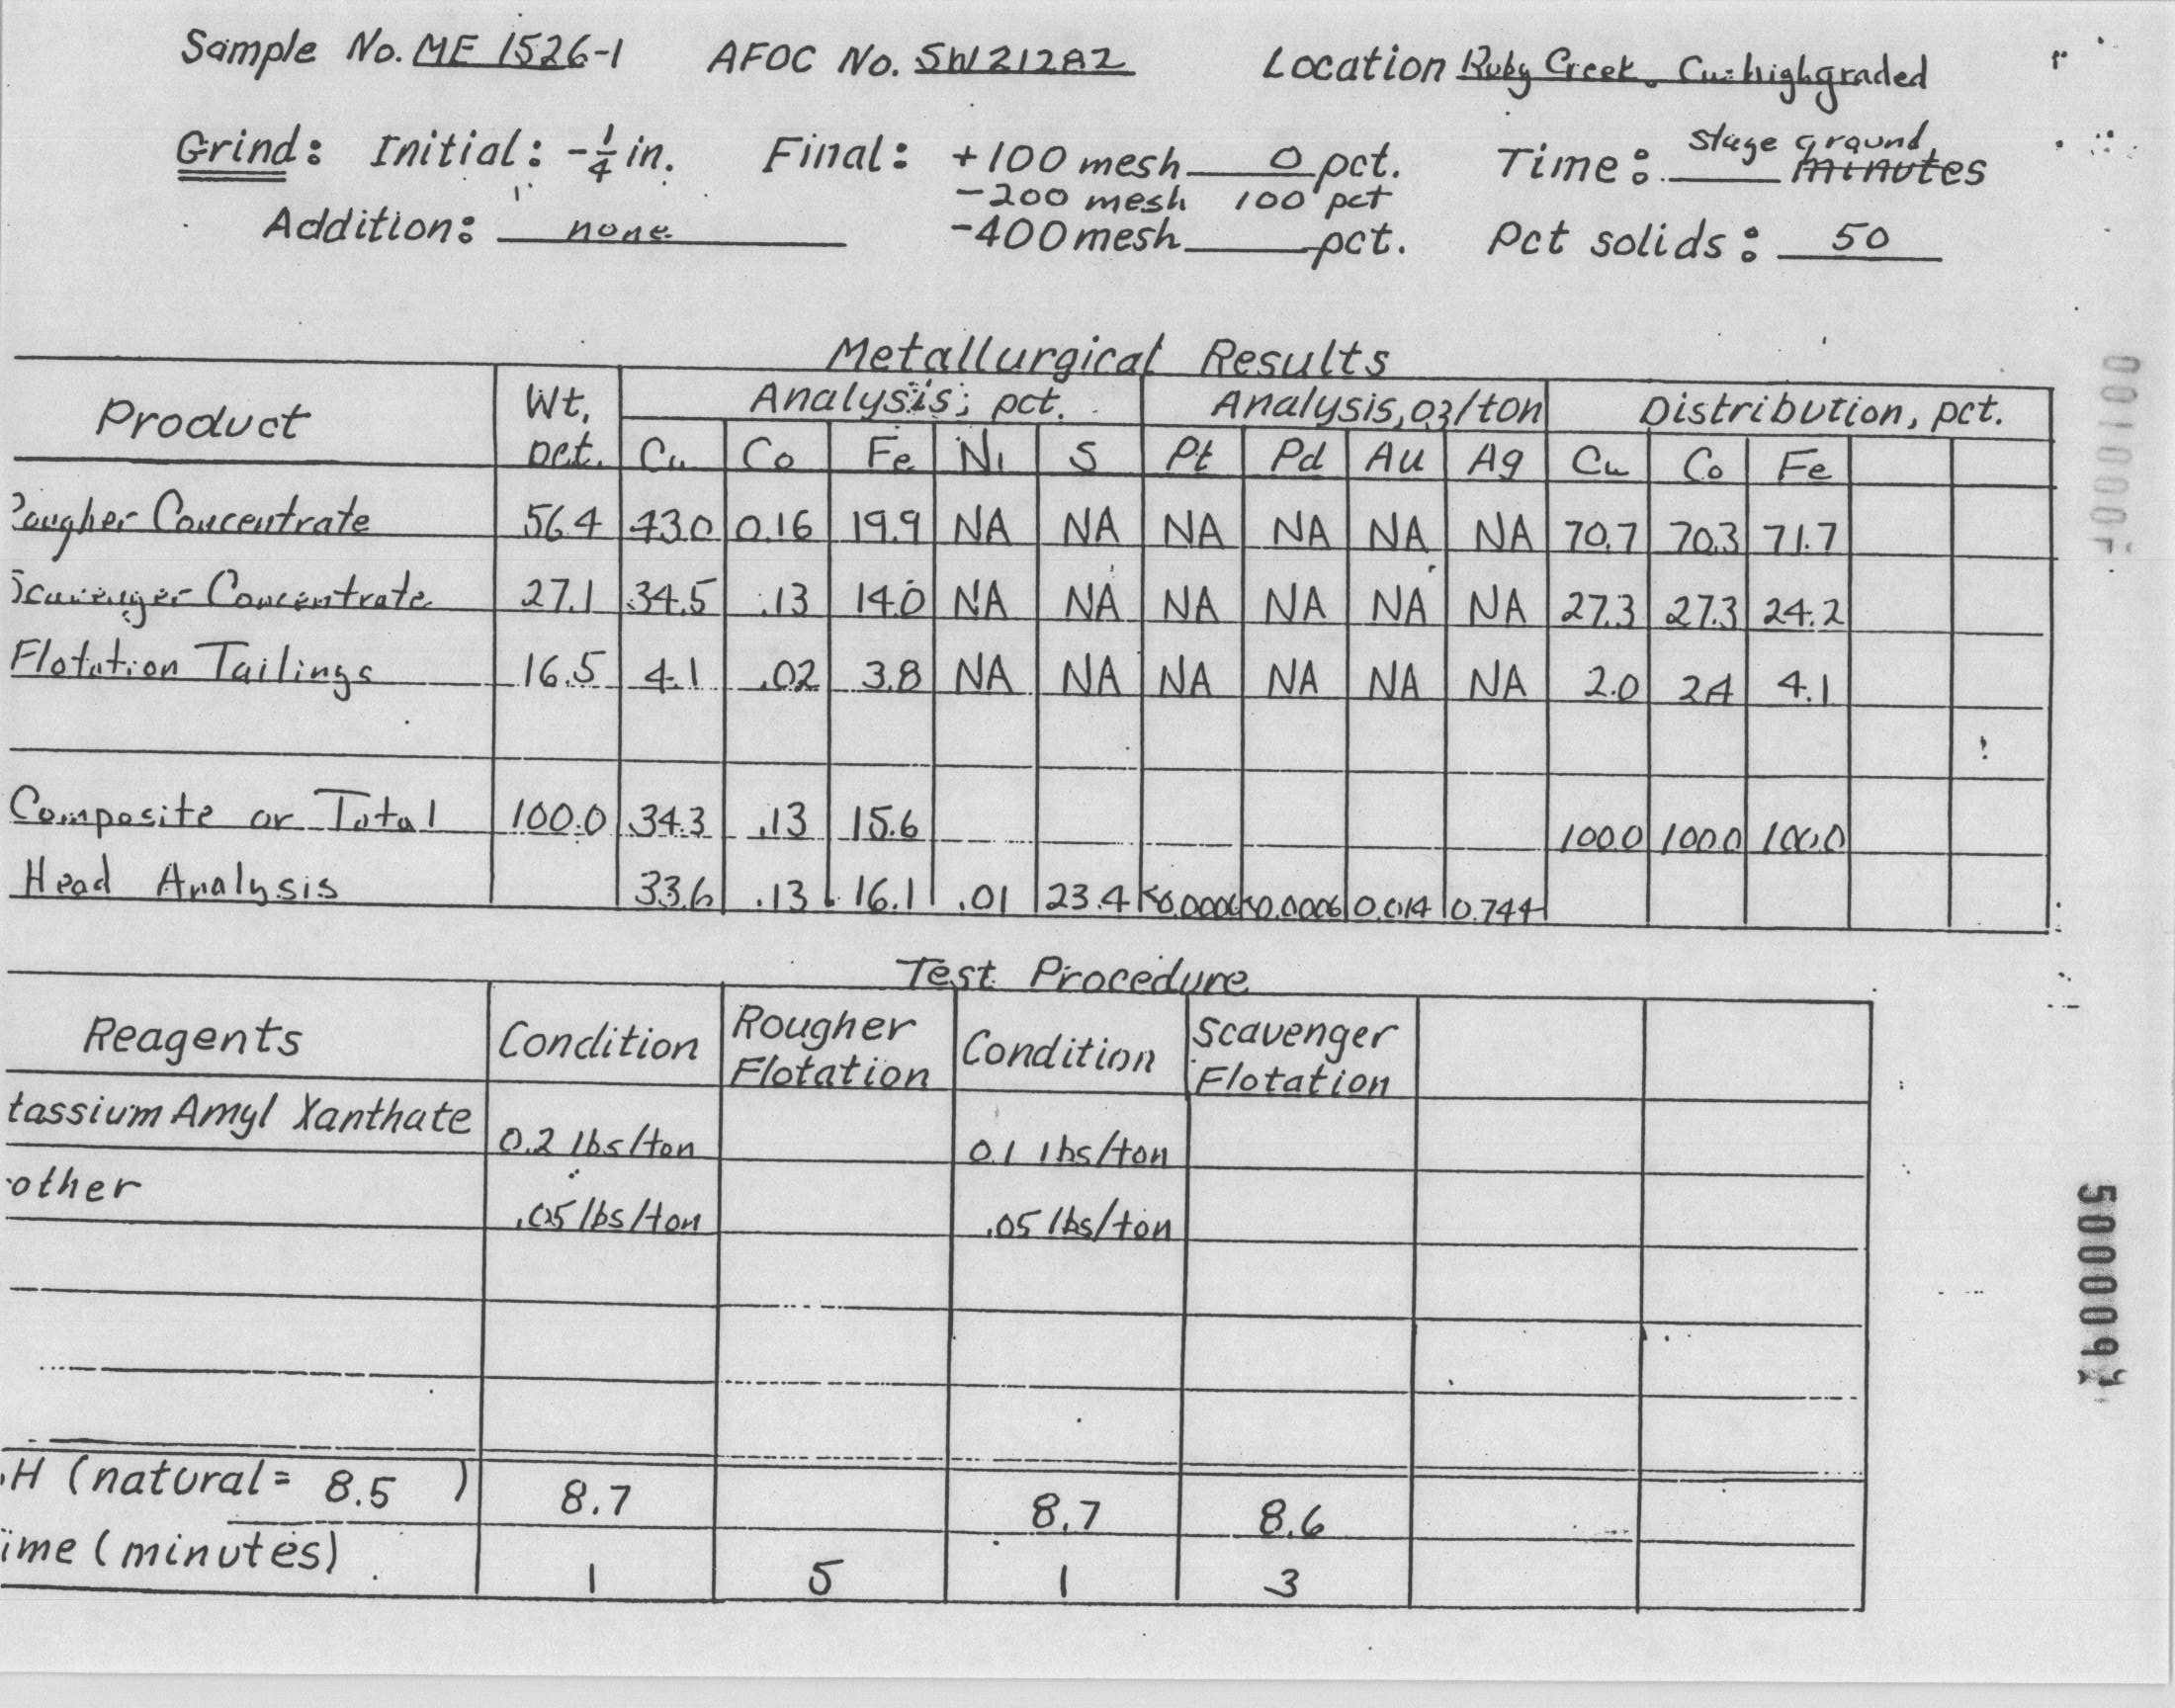 Sample No. ME 1526-1 AFOC No. SW21282 Location Ruby Creek. Cu-highgraded
Grind: Initial: -1/4 in. Final: +100 mesh 0 pct. Time: stage ground minutes
-200 mesh 100 pct
Addition: none -400 mesh pct. Pct solids: 50
Metallurgical Results
Product Wt. pct. Analysis, pct. Analysis, oz/ton Distribution, pct.
Cu Co Fe Ni S Pt Pd Au Ag Cu Co Fe
Rougher Concentrate 56.4 43.0 0.16 19.9 NA NA NA NA NA NA 70.7 70.3 71.7
Scavenger Concentrate 27.1 34.5 .13 14.0 NA NA NA NA NA NA 27.3 27.3 24.2
Flotation Tailings 16.5 4.1 .02 3.8 NA NA NA NA NA NA 2.0 2.4 4.1
Composite or Total 100.0 34.3 .13 15.6 100.0 100.0 100.0
Head Analysis 33.6 .13 16.1 .01 23.4 <0.0006 <0.0006 0.014 0.744
Test Procedure
Reagents Condition Rougher Flotation Condition Scavenger Flotation
tassium Amyl Xanthate 0.2 lbs/ton 0.1 lbs/ton
other .05 lbs/ton .05 lbs/ton
H (natural = 8.5 ) 8.7 8.7 8.6
ime (minutes) 1 5 1 3